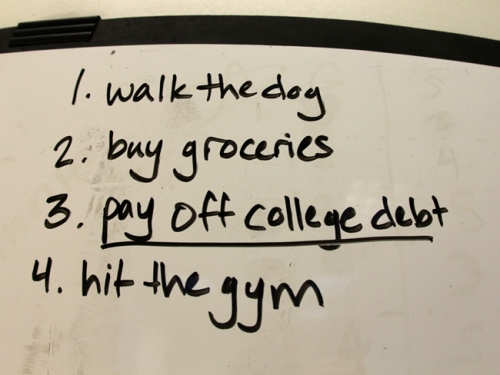 1. walk the dog
2. buy groceries
3. pay off college debt
4. hit the gym